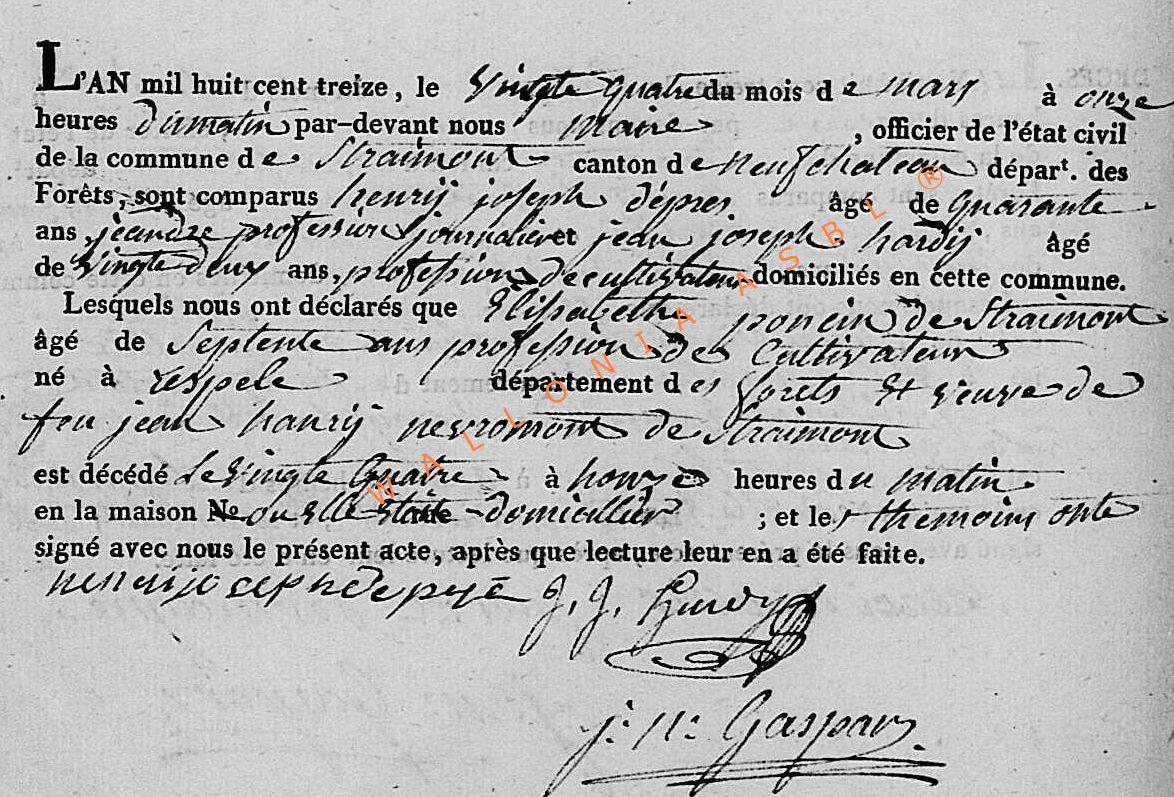 L'AN mil huit cent treize, le vingte quatre du mois de mars à onze
heures dumatin par-devant nous Maire, officier de l'état civil
de la commune de Straimont canton de neufchateau dépar^t. des
Forêts, sont comparus henrij joseph dépres âgé de quarante
ans, profession journalier et jean joseph hardij âgé
de vingte deux ans, profession de cultivateur domiciliés en cette commune.
Lesquels nous ont déclarés que Elisabethe poncin de Straimont
âgé de septente ans profession de Cultivateur
né à Lespele département des forets et veuve de
feu jean hanrij nevromont de Straimont
est décédé le vingte quatre à honze heures du matin
en la maison No ou elle domicillier ; et les themoins onte
signé avec nous le présent acte, après que lecture leur en a été faite.
J. J. Hardy
j: n: Gaspar
WALLONIA ASBL ®